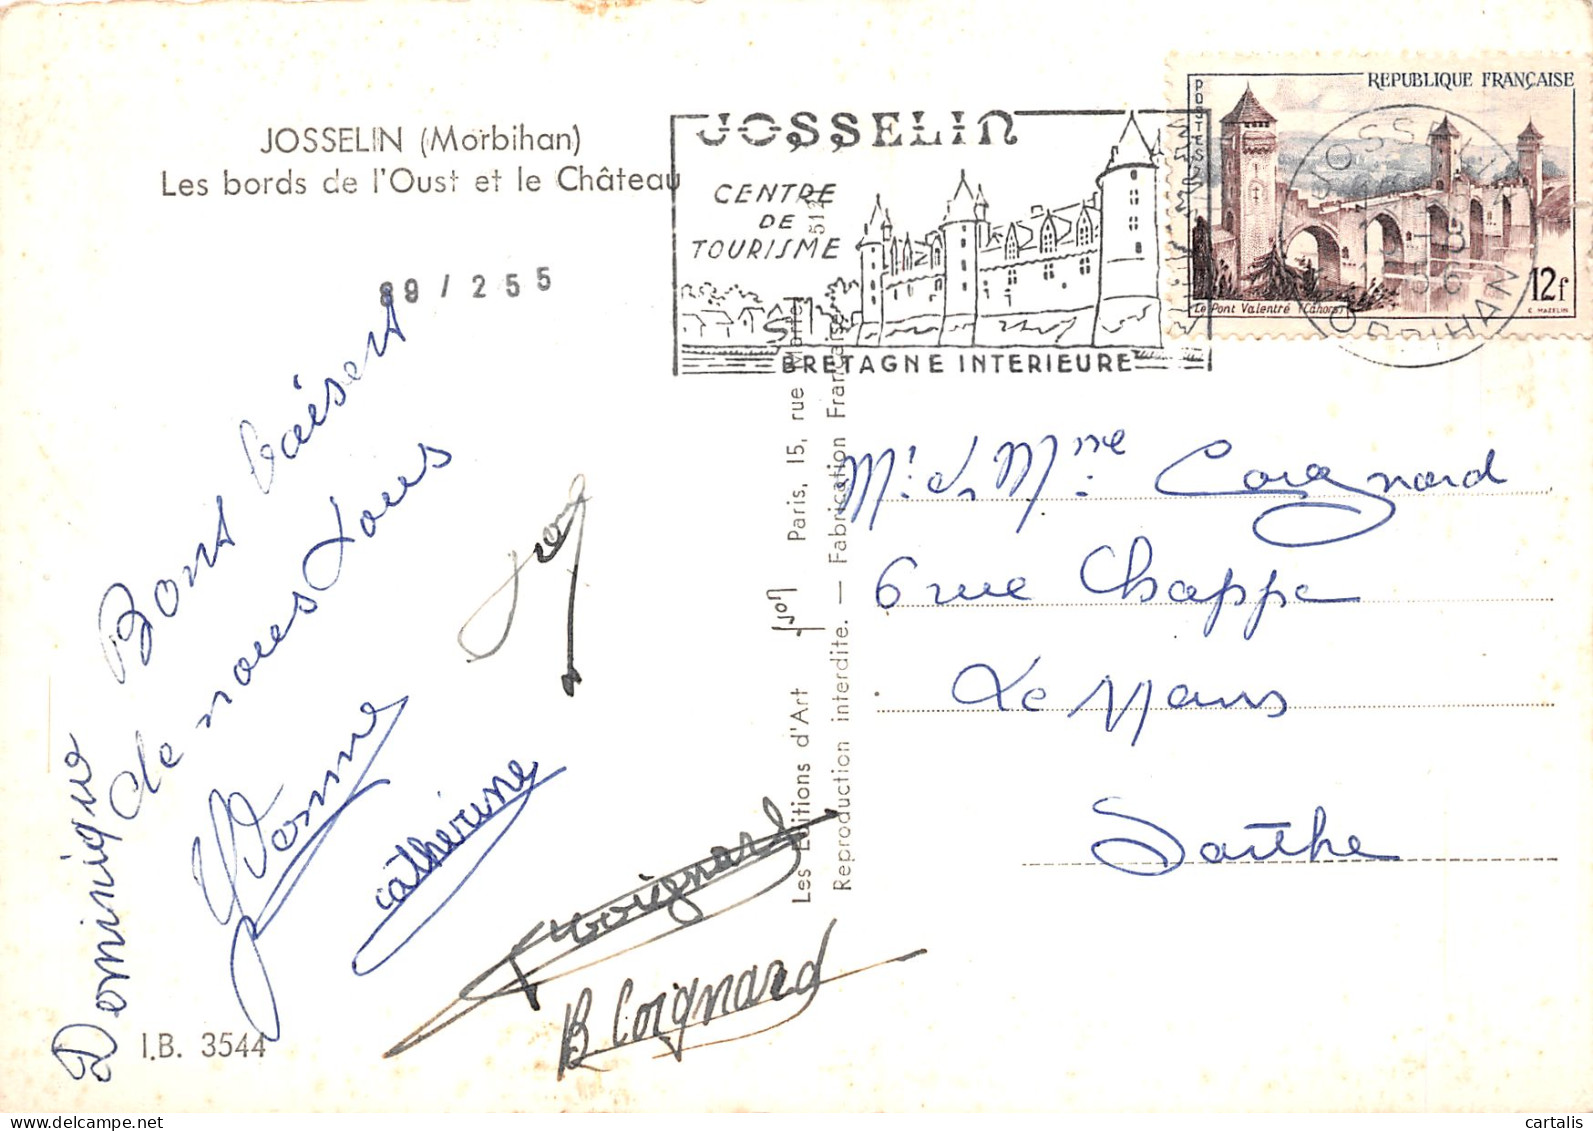 JOSSELIN (Morbihan)
Les bords de l'Oust et le Château
89 / 255
JOSSELIN
CENTRE
DE
TOURISME
BRETAGNE INTERIEURE
REPUBLIQUE FRANÇAISE
POSTES
12f
Le Pont Valentré (Cahors)
C. MAZELIN
JOSSELIN
MORBIHAN
Bons baisers
de nous tous
Dominique
Yvonne
catherine
Coignard
B Coignard
I.B. 3544
Les Editions d'Art Yvon Paris, 15, rue Martel
Reproduction interdite. — Fabrication Française
Mr et Mme Coignard
6 rue Chappe
Le Mans
Sarthe
cartalis
www.delcampe.net